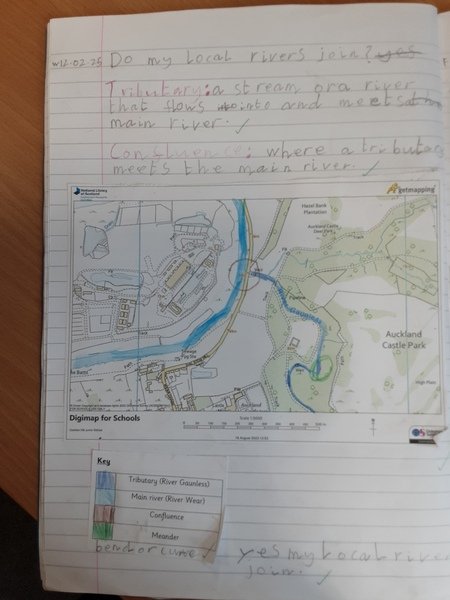 w12.02.25 Do my local rivers join? yes
Tributary: a stream or a river
that flows into and meets the
main river. ✓
Confluence: where a tributary
meets the main river. ✓
National Library
of Scotland
getmapping
Hazel Bank
Plantation
Auckland Castle
Deer Park
Track
Pipeline
Gaunless
Auckland
Castle Park
High Plain
Sewage
Digimap for Schools
Scale 1:5000
Key
Tributary (River Gaunless)
Main river (River Wear)
Confluence
Meander
bend or curve ✓ yes my local river
join. ✓